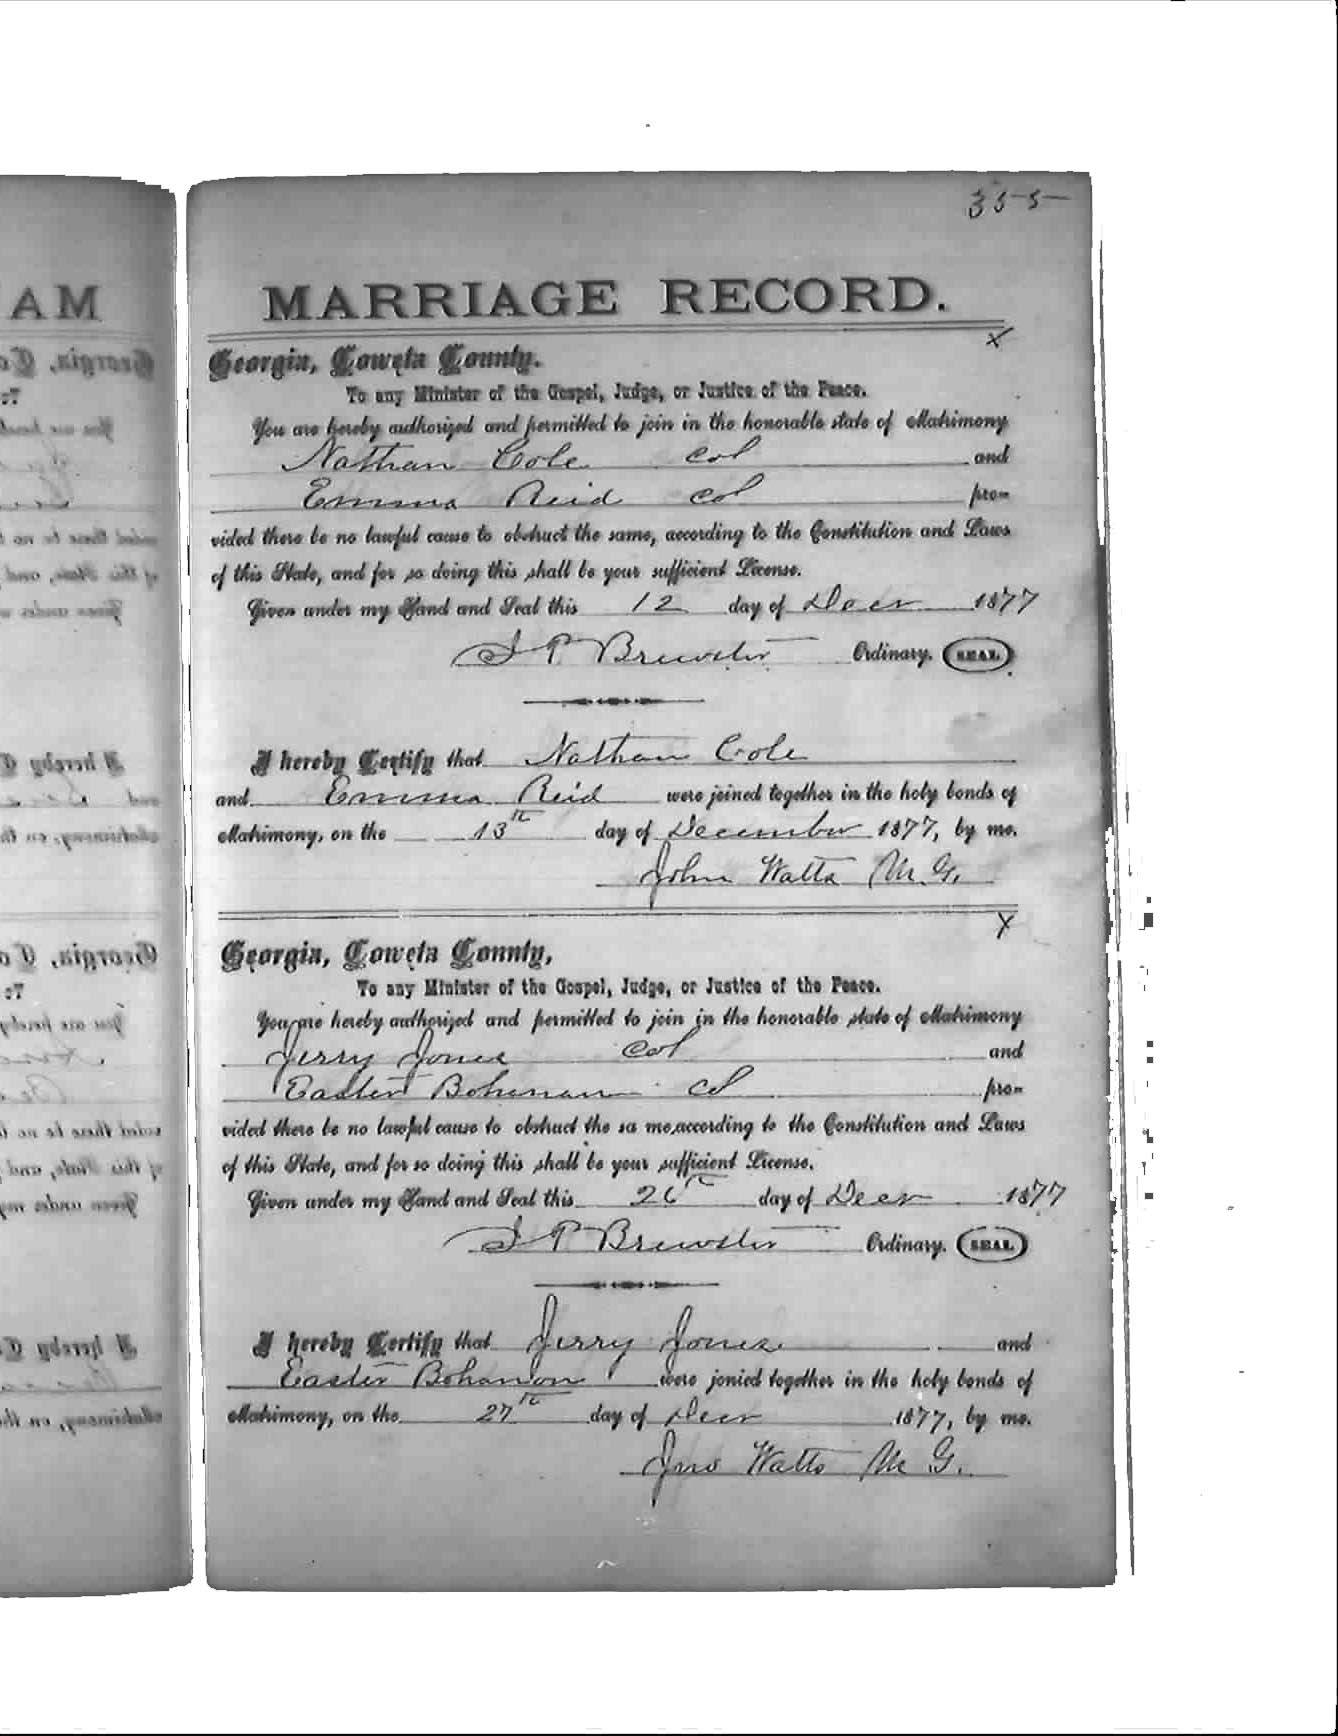 355
MARRIAGE RECORD.
x
Georgia, Coweta County.
To any Minister of the Gospel, Judge, or Justice of the Peace.
You are hereby authorized and permitted to join in the honorable state of Matrimony
Nathan Cole col and
Emma Reid col pro-
vided there be no lawful cause to obstruct the same, according to the Constitution and Laws
of this State, and for so doing this shall be your sufficient License.
Given under my Hand and Seal this 12 day of Decr 1877
J P Brewster Ordinary. SEAL
I hereby Certify that Nathan Cole
and Emma Reid were joined together in the holy bonds of
Matrimony, on the 13th day of December 1877, by me.
John Watts M. G.
x
Georgia, Coweta County,
To any Minister of the Gospel, Judge, or Justice of the Peace.
You are hereby authorized and permitted to join in the honorable state of Matrimony
Jerry Jones col and
Easter Bohanan col pro-
vided there be no lawful cause to obstruct the sa me,according to the Constitution and Laws
of this State, and for so doing this shall be your sufficient License.
Given under my Hand and Seal this 26th day of Decr 1877
J P Brewster Ordinary. SEAL
I hereby Certify that Jerry Jones and
Easter Bohanon were jonied together in the holy bonds of
Matrimony, on the 27th day of Decr 1877, by me.
Jno Watts M G.